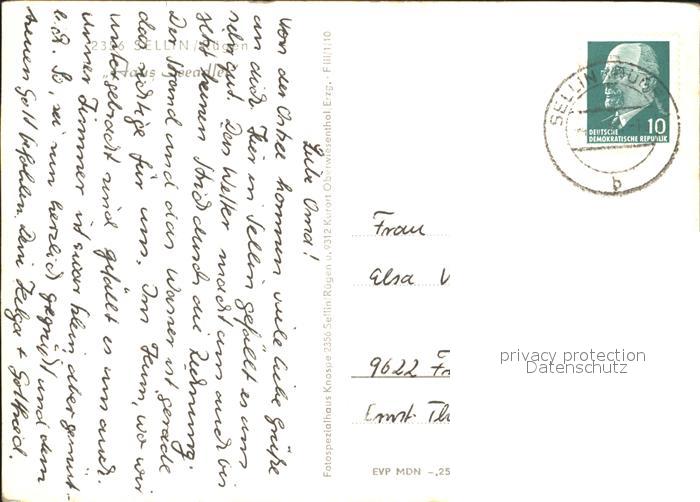 2356 SELLIN/Rügen
Liebe Oma!
Von der Ostsee kommen viele liebe Grüße
an dich. Hier in Sellin gefällt es uns
sehr gut. Das Wetter macht uns auch bis
jetzt keinen Strich durch die Rechnung.
Der Strand und das Wasser ist gerade
das richtige für uns. Im Heim, wo wir
untergebracht sind gefällt es uns auch.
Unser Zimmer ist zwar klein aber gemüt-
lich. So, sei nun herzlich gegrüßt und dem
treuen Gott befohlen. Dein Helga + Gottfried.
Fotospezialhaus Knospe 2356 Sellin/Rügen u. 9312 Kurort Oberwiesenthal Erzg. · F III/1/10
SELLIN (RÜG)
b
10
DEUTSCHE
DEMOKRATISCHE REPUBLIK
Frau
Elsa
9622 Fr
Ernst Th
privacy protection
Datenschutz
EVP MDN -,25